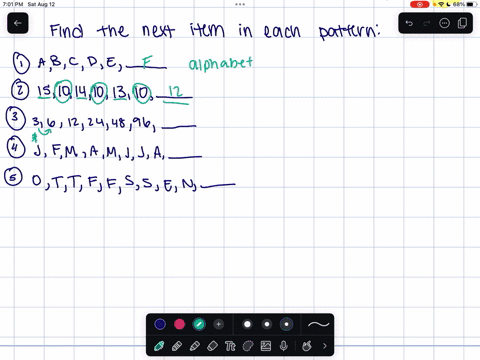 7:01 PM Sat Aug 12
68%
Find the next item in each pattern:
① A, B, C, D, E, F alphabet
② 15, 10, 14, 10, 13, 10, 12
③ 3, 6, 12, 24, 48, 96, ___
④ J, F, M, A, M, J, J, A, ___
⑤ O, T, T, F, F, S, S, E, N, ___